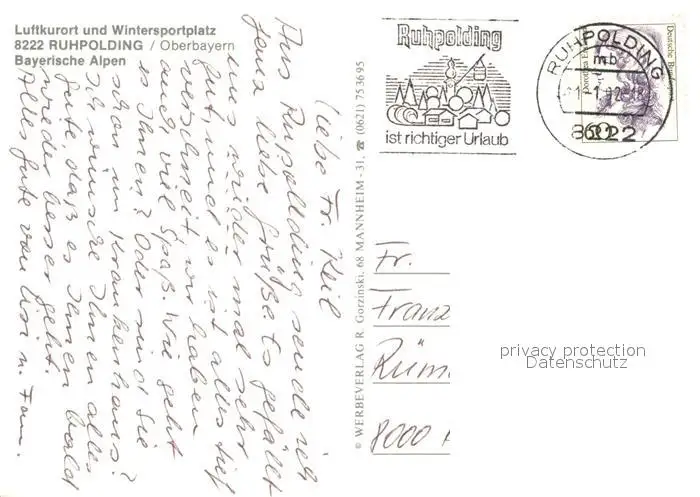 Luftkurort und Wintersportplatz
8222 RUHPOLDING / Oberbayern
Bayerische Alpen
Liebe Fr. Keil
Aus Ruhpolding sende ich
Ihnen liebe Grüße. Es gefällt
uns wieder mal sehr
gut, und es ist alles tief
verschneit, wir haben
auch viel Spaß. Wie geht
es Ihnen? Oder sind Sie
schon im Krankenhaus?
Ich wünsche Ihnen alles
Gute, daß es Ihnen bald
wieder besser geht.
Alles Gute von u. Fam.
© WERBEVERLAG R. Gorzinski, 68 MANNHEIM - 31, ☎ (0621) 753695
Ruhpolding
ist richtiger Urlaub
RUHPOLDING
mb
8222
Deutsche Bundespost
Fr.
Franz
Rüm
8000
privacy protection
Datenschutz